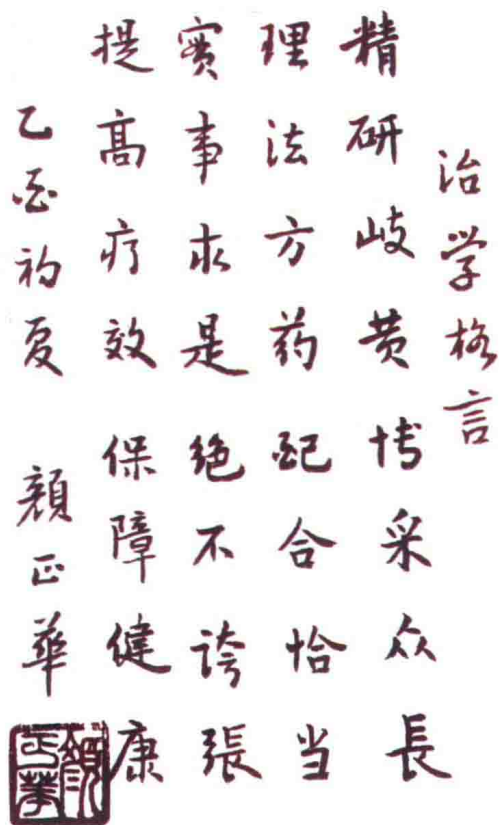 治学格言
精研岐黄博采众長
理法方药配合恰当
實事求是绝不誇張
提高疗效保障健康
乙酉初夏 顔正華
顔正華